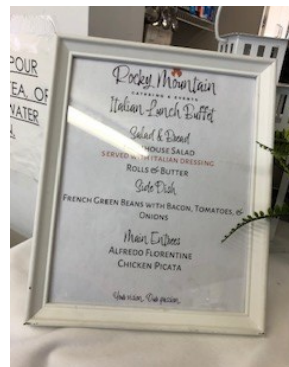 POUR
TEA, OR
WATER
Rocky Mountain
CATERING & EVENTS
Italian Lunch Buffet
Salad & Bread
HOUSE SALAD
SERVED WITH ITALIAN DRESSING
ROLLS & BUTTER
Side Dish
FRENCH GREEN BEANS WITH BACON, TOMATOES, &
ONIONS
Main Entrees
ALFREDO FLORENTINE
CHICKEN PICATA
Your vision, Our passion.